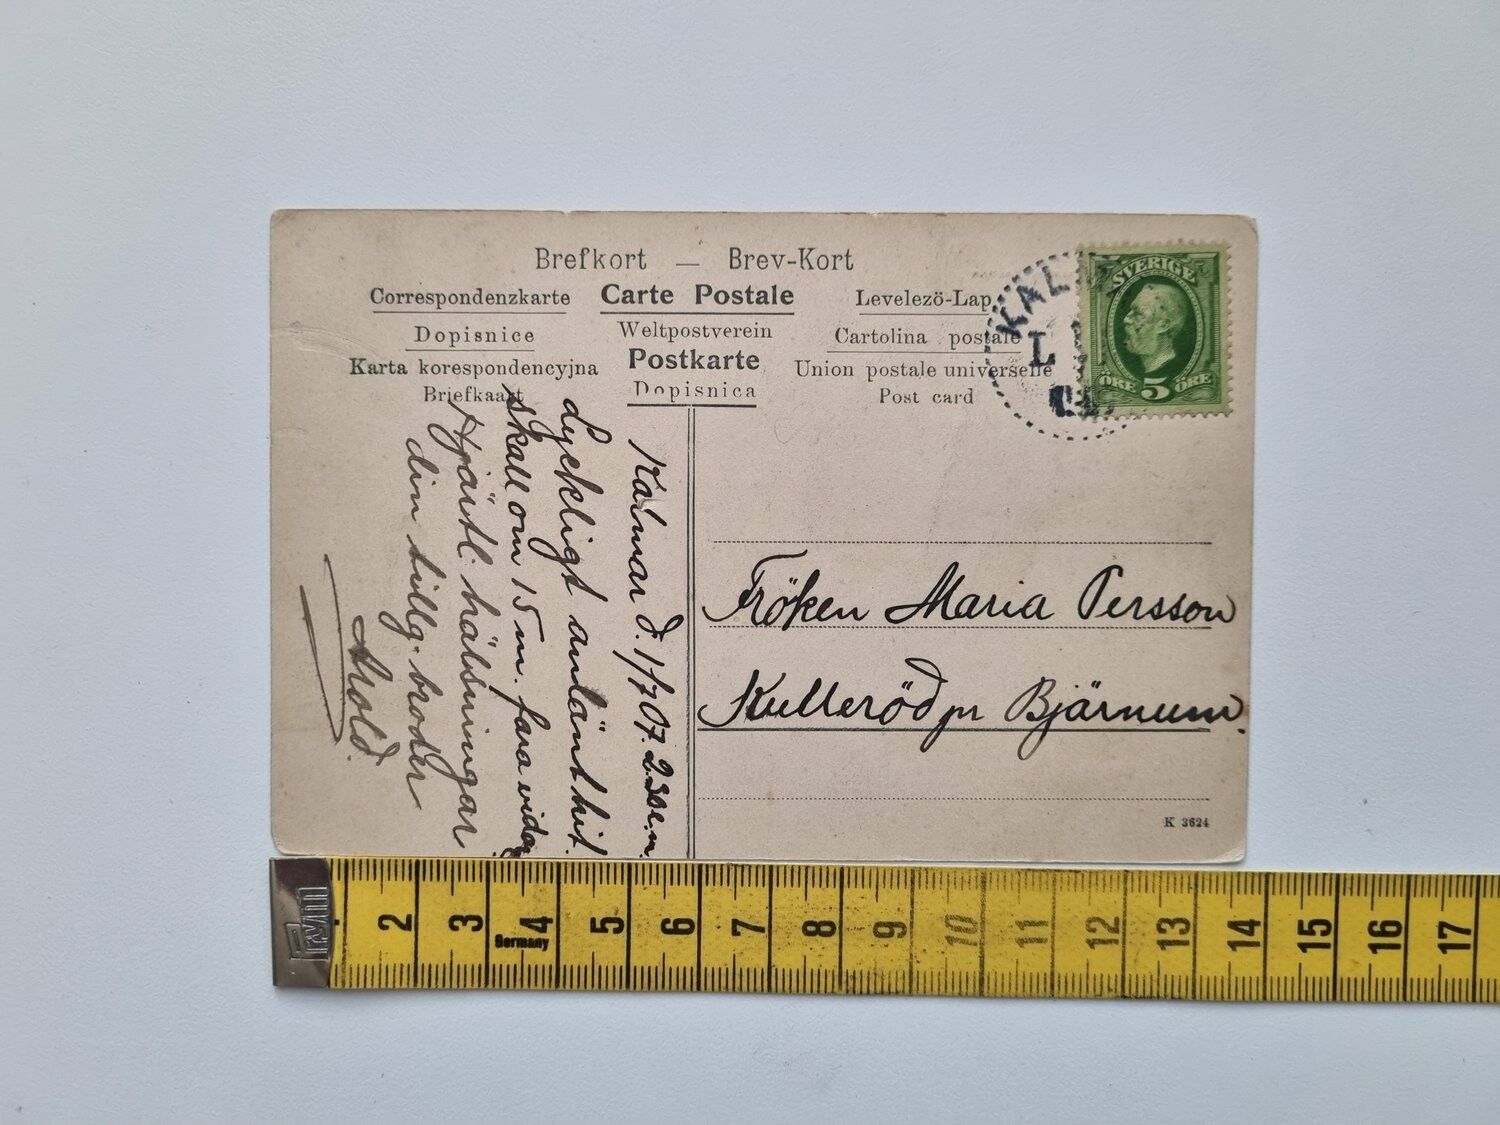 Brefkort — Brev-Kort
Correspondenzkarte Carte Postale Levelező-Lap
Dopisnice Weltpostverein Cartolina postale
Karta korespondencyjna Postkarte Union postale universelle
Briefkaart Dopisnica Post card
KAL
L
SVERIGE
ÖRE 5 ÖRE
Kalmar d. 1/7 07. 2.30 e.m.
Lyckligt anländt hit.
skall om 15 m. fara vidare
Hjärtl. hälsningar
din tillg. broder
Arold.
Fröken Maria Persson
Kulleröd pr Bjärnum.
K 3624
Prym
2 3 4 5 6 7 8 9 10 11 12 13 14 15 16 17
Germany